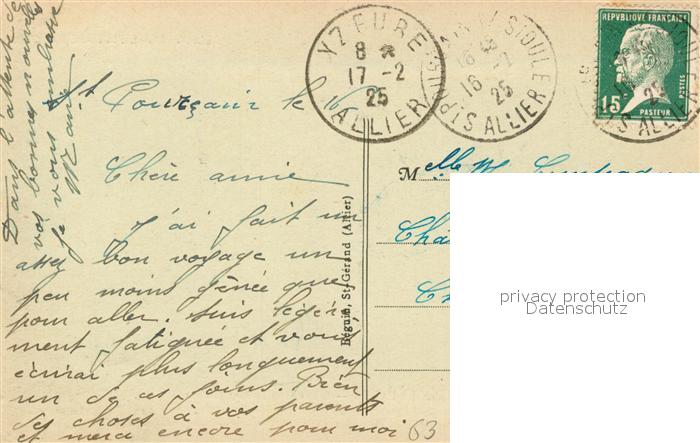 YZEURE
8
17 -2
25
ALLIER
SIOULE
16 -2
25
ALLIER
RÉPUBLIQUE FRANÇAISE
15
POSTES
PASTEUR
St Pourçain le 16
Chère amie
J'ai fait un
assez bon voyage un
peu moins gênée que
pour aller. Suis légère
ment fatiguée et vous
écrirai plus longuement
un de ces jours. Bien
des choses à vos parents
et merci encore pour moi
Dans l'attente de
vos bonnes nouvelles
je vous embrasse
Marie
Béguin, St-Gérand (Allier)
Melle M.
Châ
privacy protection
Datenschutz
63